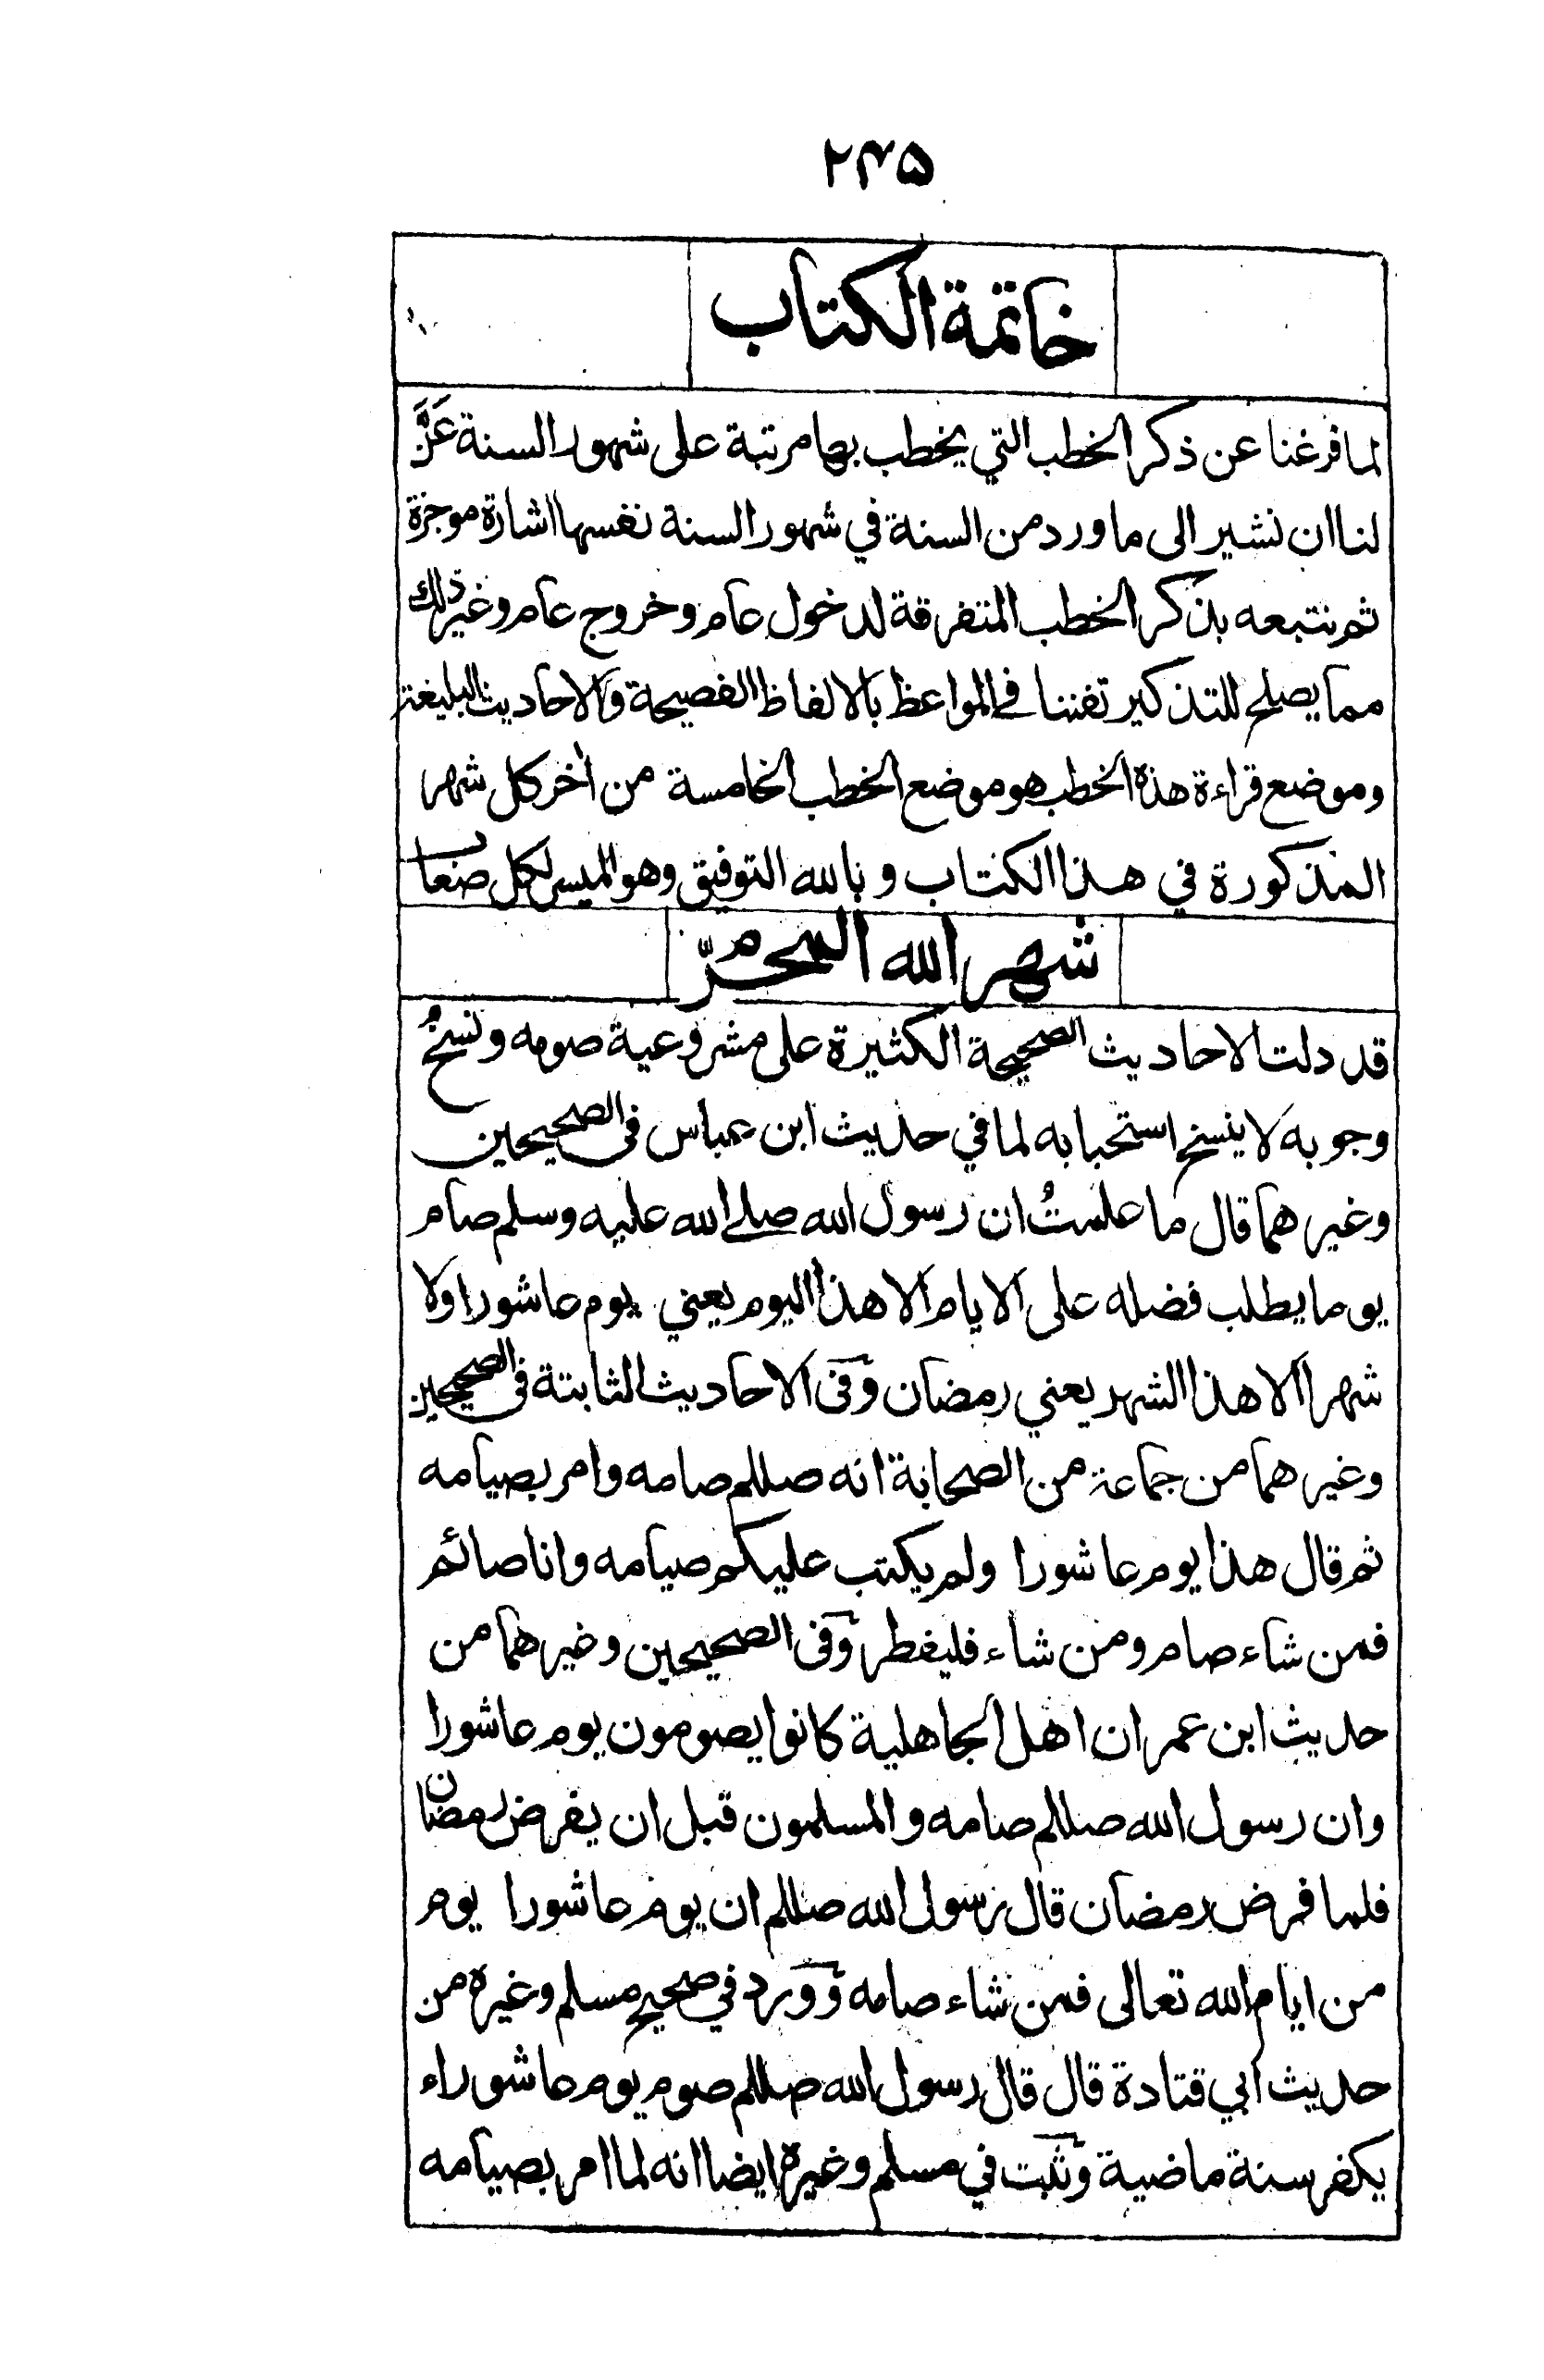 ۲۴۵
خاتمة الكتاب
لما فرغنا عن ذكر الخطب التي يخطب بها مرتبة على شهور السنة عَنَّ
لنا ان نشير الى ما ورد من السنة في شهور السنة نفسها اشارة موجزة
ثم نتبعه بذكر الخطب المتفرقة لدخول عام وخروج عام وغير ذلك
مما يصلح للتذكير تفننا في المواعظ بالالفاظ الفصيحة والاحاديث البليغة
وموضع قراءة هذه الخطب هو موضع الخطب الخامسة من اخر كل شهر
المذكورة في هذا الكتاب وبالله التوفيق وهو الميسر لكل
شهر الله المحرّم
قد دلت الاحاديث الصحيحة الكثيرة على مشروعية صومه ونسخُ
وجوبه لا ينسخ استحبابه لما في حديث ابن عباس في الصحيحين
وغيرهما قال ما علمتُ ان رسول الله صلى الله عليه وسلم صام
يوما يطلب فضله على الايام الا هذا اليوم يعني يوم عاشورا ولا
شهرا الا هذا الشهر يعني رمضان وفى الاحاديث الثابتة فى الصحيحين
وغيرهما من جماعة من الصحابة انه صللم صامه وامر بصيامه
ثم قال هذا يوم عاشورا ولم يكتب عليكم صيامه وانا صائم
فمن شاء صام ومن شاء فليفطر وفى الصحيحين وغيرهما من
حديث ابن عمر ان اهل الجاهلية كانوا يصومون يوم عاشورا
وان رسول الله صللم صامه والمسلمون قبل ان يفرض رمضان
فلما فرض رمضان قال رسول الله صللم ان يوم عاشورا يوم
من ايام الله تعالى فمن شاء صامه وورد في صحيح مسلم وغيره من
حديث ابي قتادة قال قال رسول الله صللم صوم يوم عاشوراء
يكفر سنة ماضية وثبت في مسلم وغيره ايضا انه لما امر بصيامه